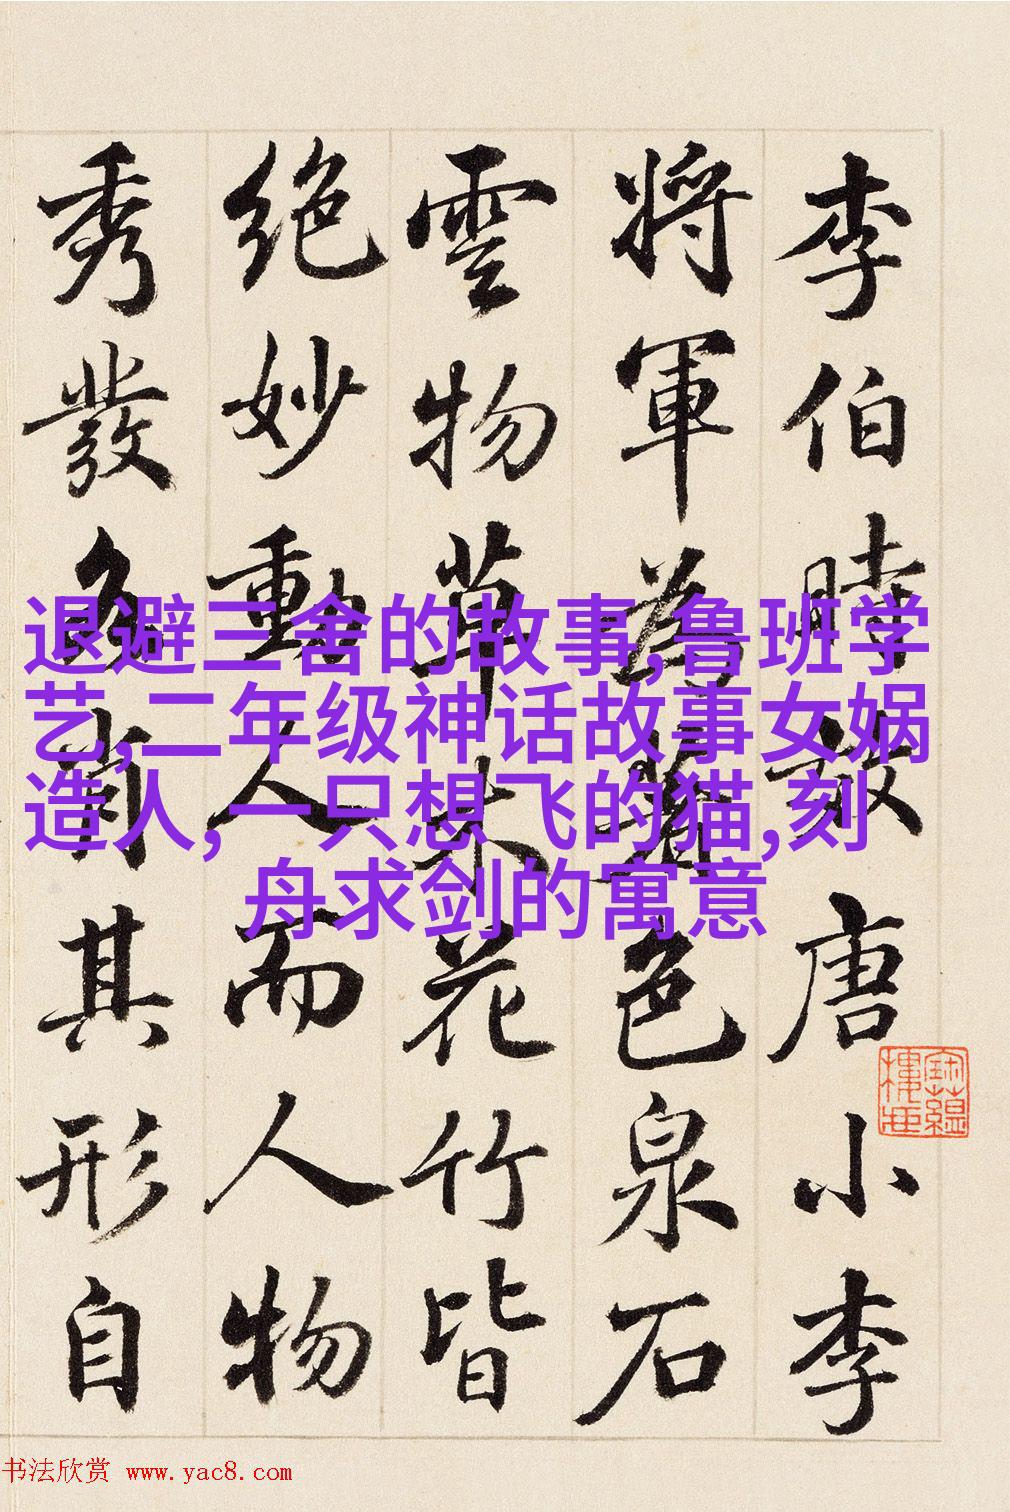 李伯時效唐小李
將軍為著色泉石
雲物草木花竹皆
絕妙動人而人物
秀發各肖其形自
退避三舍的故事,鲁班学
艺,二年级神话故事女娲
造人,一只想飞的猫,刻
舟求剑的寓意
书法欣赏 www.yac8.com